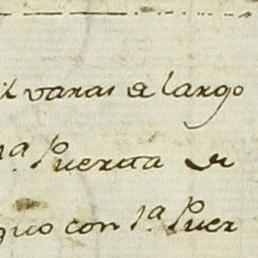 varas de largo
1ª Puerta de
con 1ª Puer